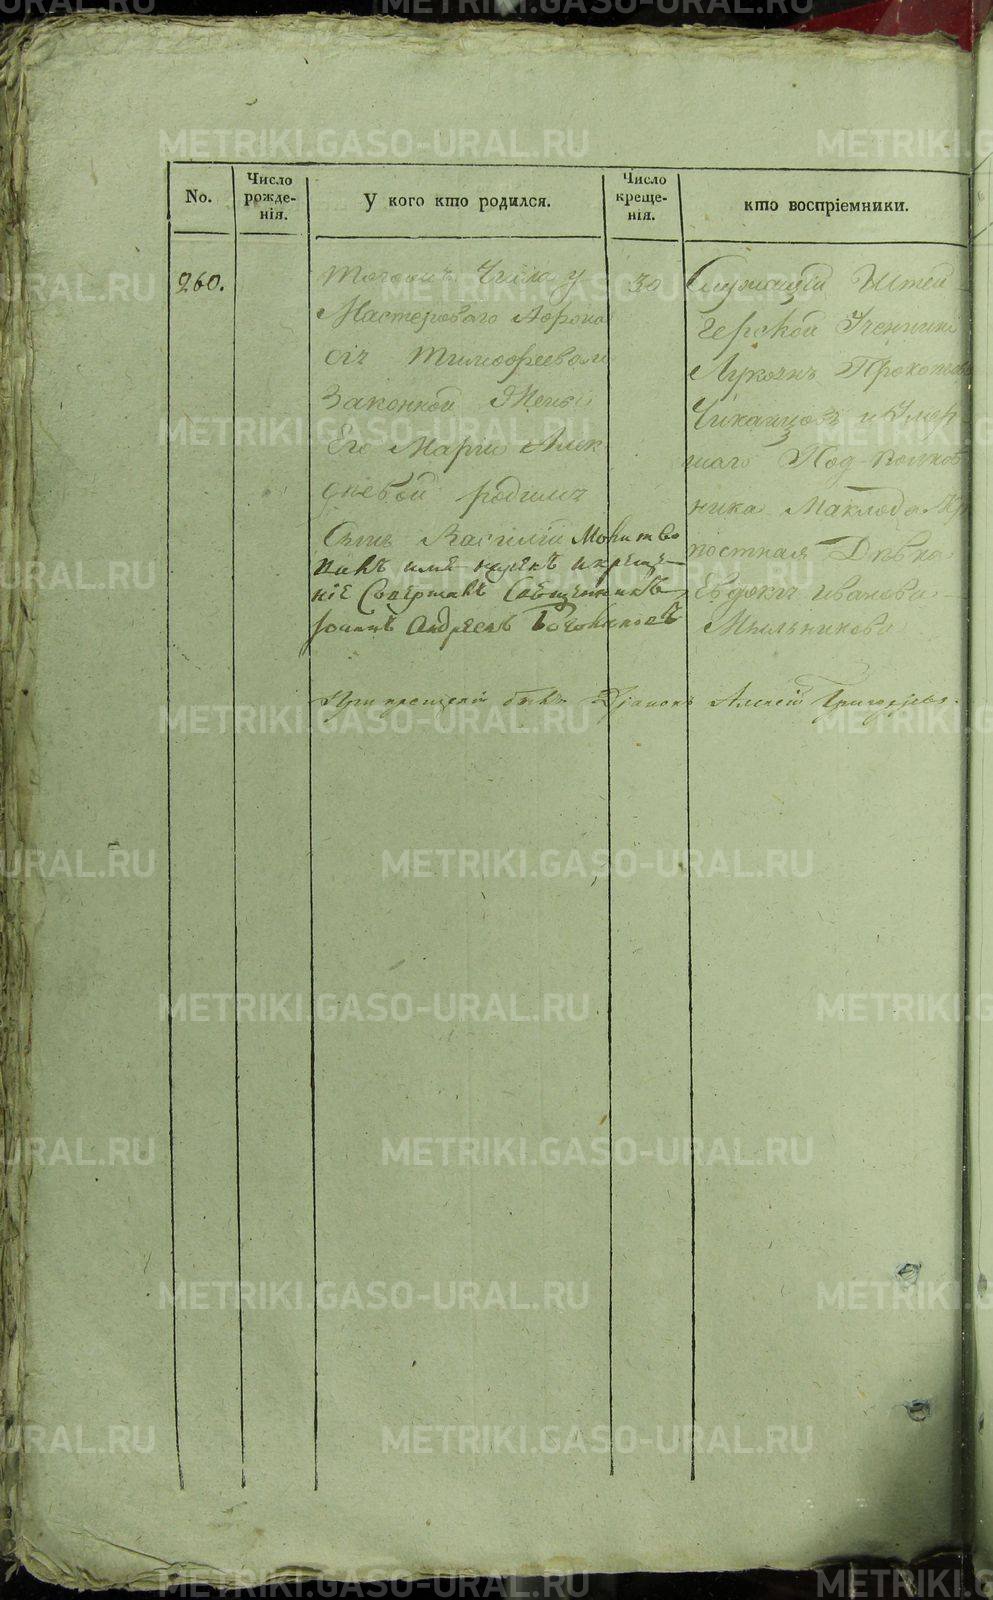 METRIKI.GASO-URAL.RU
No.
Число рожде-нія.
У кого кто родился.
Число креще-нія.
кто воспріемники.
260.
тогожъ Числа у
Мастероваго Афона
сія Тимофеева
Законной Жены
Его Маріи Алек
сѣевой родился
Сынъ Василій Молитво
имя нареченъ и креще-
ніе Совершалъ Священникъ
Іоаннъ Андреевъ
30
Служащій Штей
герской Ученикъ
Прокопьевъ
и Умер
шаго Под полков
ника Маклода Кре
постная Дѣвка
Евдокія Иванова
Мыльникова
При крещеніи былъ Діаконъ Алексій Григорьевъ.